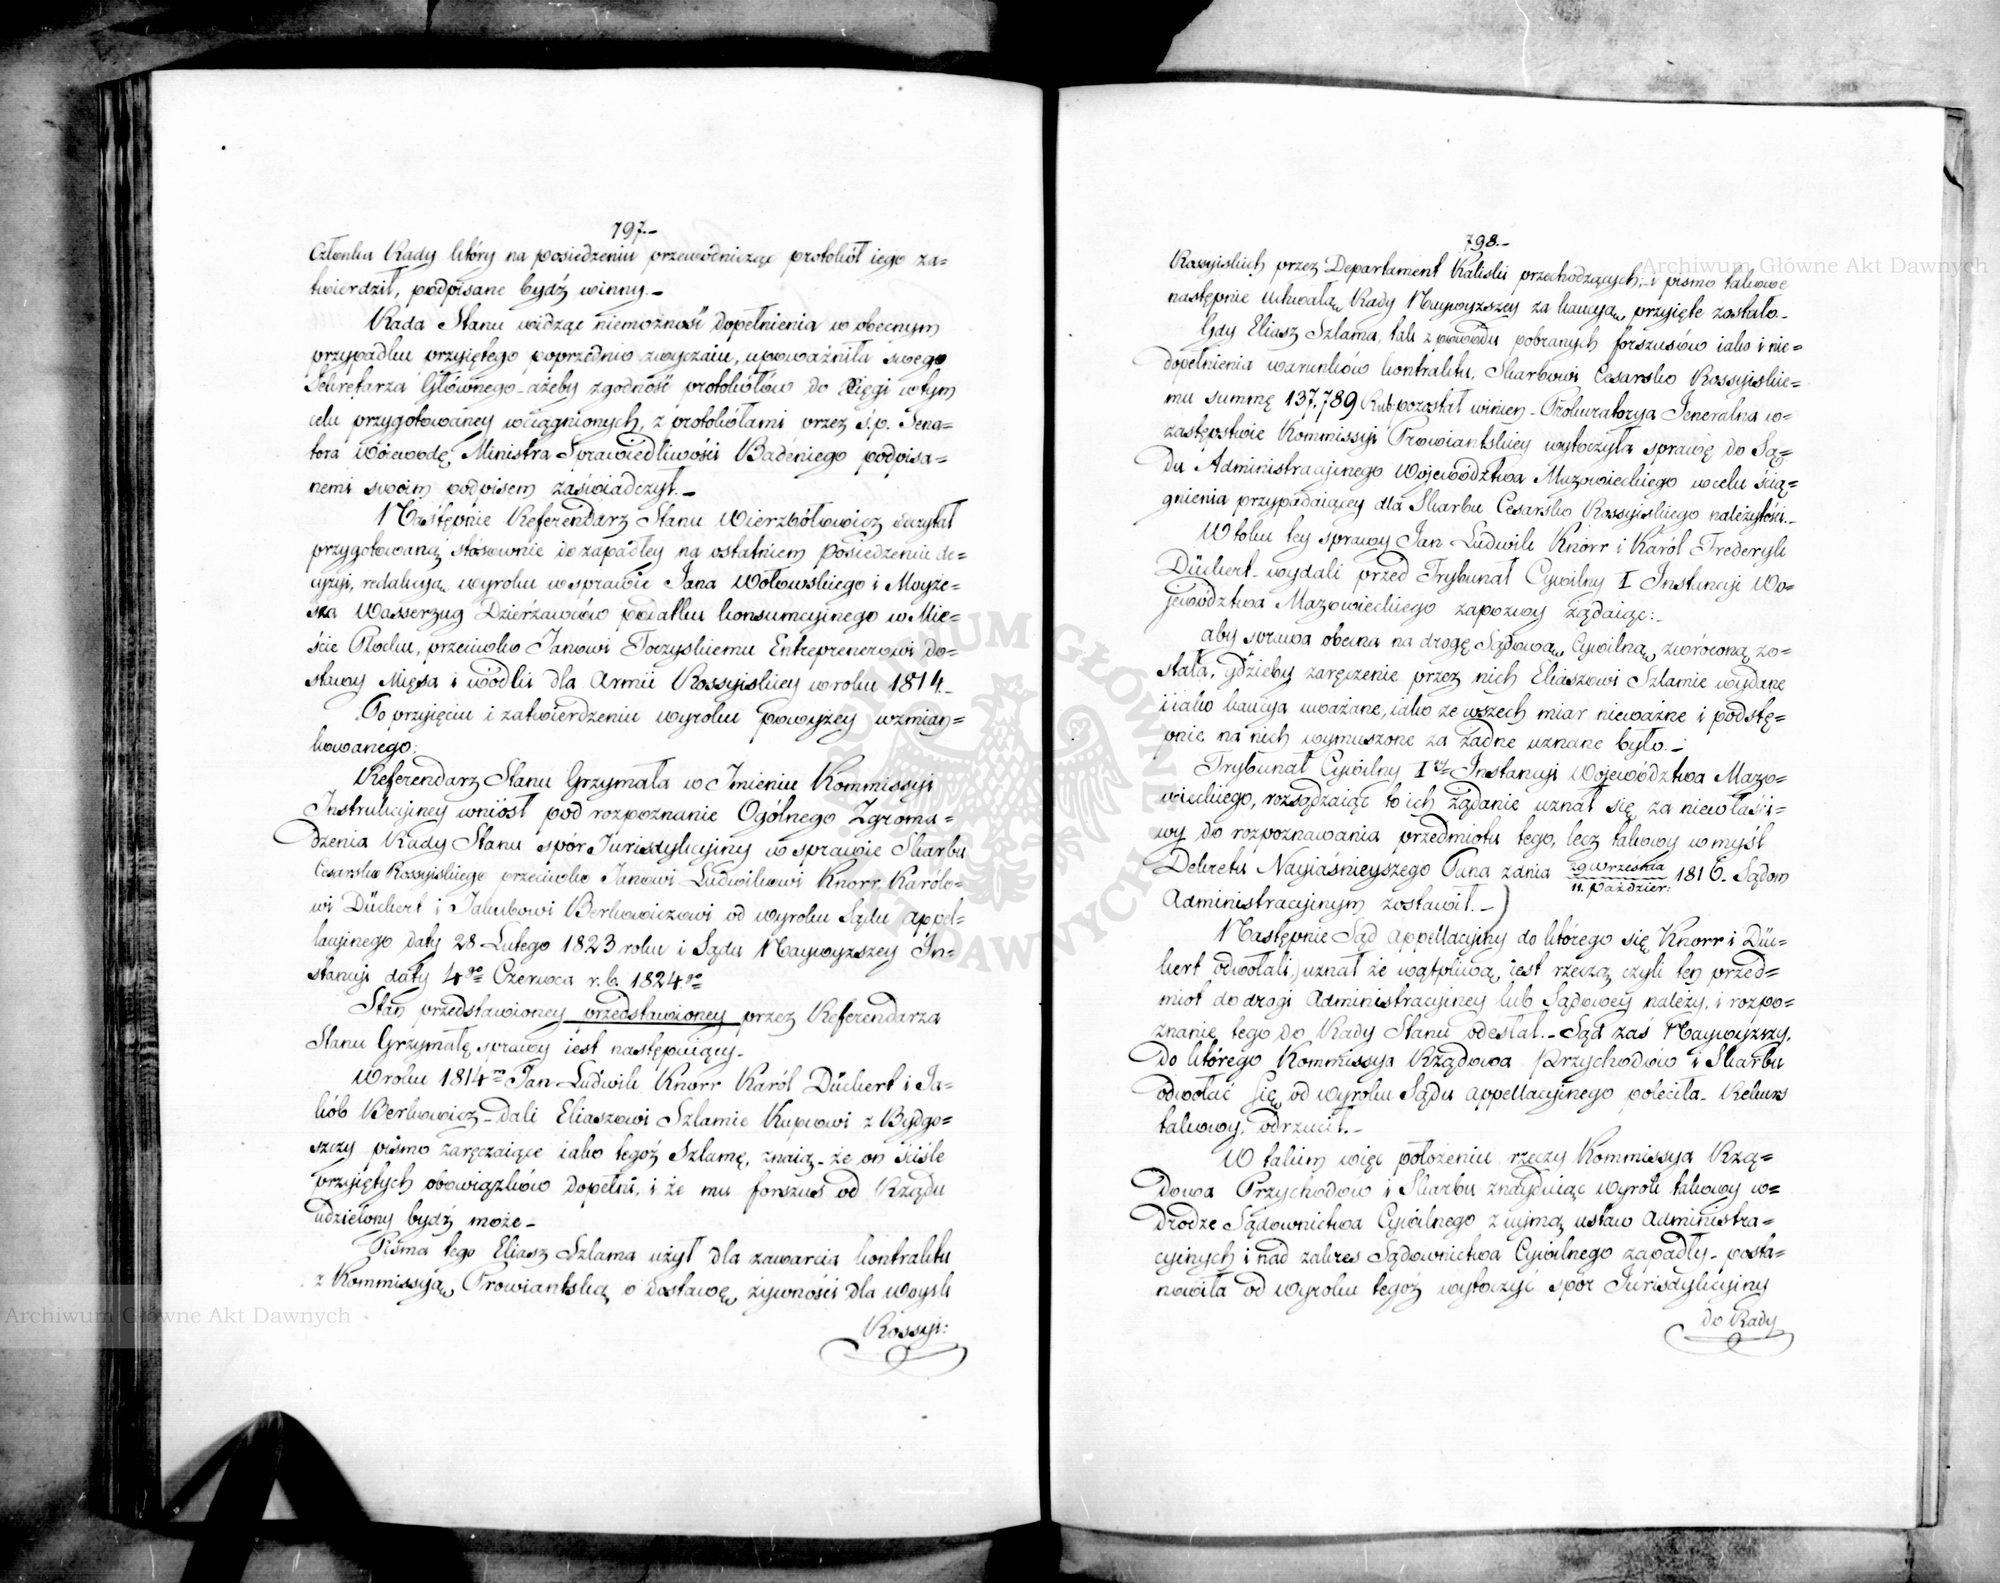 797.-
Członka Rady który na posiedzeniu przewodnicząc protokół iego za=
twierdził, podpisane bydź winny.-
Rada Stanu widząc niemożność dopełnienia w obecnym
przypadku przyiętego poprzednio zwyczaiu, upoważniła swego
Sekretarza Głównego ażeby zgodność protokółów do xięgi w tym
celu przygotowaney wciągnionych, z protokółami przez ś.p. Sena=
tora Woiewodę Ministra Sprawiedliwości Badeniego podpisa=
nemi swoim podpisem zaświadczył.-
Następnie Referendarz Stanu Wierzbółowicz odczytał
przygotowaną stósownie do zapadłey na ostatniem posiedzeniu de=
cyzyi, redakcyą wyroku w sprawie Jana Wołowskiego i Moyże=
sza Wasserzug Dzierżawców podatku konsumcyinego w Mie=
ście Płocku, przeciwko Janowi Toczyskiemu Entreprenerowi do=
stawy Mięsa i wódki dla Armii Rossyiskiey w roku 1814.-
Po przyięciu i zatwierdzeniu wyroku powyżey wzmian=
kowanego:
Referendarz Stanu Grzymała w Imieniu Kommissyi
Instrukcyiney wniósł pod rozpoznanie Ogólnego Zgroma=
dzenia Rady Stanu spór Jurisdykcyiny w sprawie Skarbu
Cesarsko Rossyiskiego przeciwko Janowi Ludwikowi Knorr Karólo=
wi Dückert i Jakubowi Berkowiczowi od wyroku Sądu Appel=
lacyinego daty 28 Lutego 1823 roku i Sądu Naywyzszey In=
stancyi daty 4go Czerwca r.b. 1824go
Stan przedstawioney przedstawioney przez Referendarza
Stanu Grzymałę sprawy iest następuiący.-
W roku 1814m Jan Ludwik Knorr Karól Dückert i Ja=
kób Berkowicz dali Eliaszowi Szlamie Kupcowi z Bydgo=
szczy pismo zaręczaiące iako tegóż Szlamę, znaią - że on ściśle
przyiętych obowiązków dopełni, i że mu forszus od Rządu
udzielony bydź może -
Pisma tego Eliasz Szlama użył dla zawarcia kontraktu
z Kommissyą Prowiantską o dostawę żywności dla Woysk
Rossyi:
798.-
Rossyiskich przez Departament Kaliski przechodzących; i pismo takowe
następnie uchwałą Rady Naywyzszey za kaucyą przyięte zostało.
Gdy Eliasz Szlama, tak z powodu pobranych forszusów iako i nie=
dopełnienia warunków kontraktu, Skarbowi Cesarsko Rossyiskie=
mu summę 137.789 Rub: pozostał winien - Prokuratorya Jeneralna w
zastępstwie Kommissyi Prowiantskiey wytoczyła sprawę do Są=
du Administracyinego Województwa Mazowieckiego w celu ścią=
gnienia przypadaiącey dla Skarbu Cesarsko Rossyiskiego należytości.-
W toku tey sprawy Jan Ludwik Knorr i Karól Frederyk
Dückert wydali przed Trybunał Cywilny I Instancyi Wo=
jewództwa Mazowieckiego zapozwy żądaiąc:
aby sprawa obecna na drogę Sądową Cywilną zwróconą zo=
stała, gdzieby zaręczenie przez nich Eliaszowi Szlamie wydane
i iako kaucya uważane, iako ze wszech miar nieważne i podstę=
pnie na nich wymuszone za żadne uznane było.-
Trybunał Cywilny Iszéj Instancyi Województwa Mazo=
wieckiego, rozsądzaiąc to ich żądanie uznał się za niewłaści=
wy do rozpoznawania przedmiotu tego, lecz takowy w myśl
Dekretu Nayiaśnieyszego Pana z dnia 29 Września / 11. Paździer: 1816. Sądom
Administracyinym zostawił.-)
Następnie Sąd Appellacyiny do którego się Knorr i Dü=
kert odwołali, uznał że wątpliwą iest rzeczą czyli ten przed=
miot do drogi Administracyiney lub Sądowey należy, i rozpo=
znanie tego do Rady Stanu odesłał.- Sąd zaś Naywyzszy,
do którego Kommissya Rządowa Przychodów i Skarbu
odwołać się od wyroku Sądu Appellacyinego poleciła - Rekurs
takowy odrzucił.-
W takim więc położeniu rzeczy Kommissya Rzą=
dowa Przychodów i Skarbu znayduiąc wyrok takowy w
drodze Sądownictwa Cywilnego z uymą ustaw Administra=
cyinych i nad zakres Sądownictwa Cywilnego zapadły - posta=
nowiła od wyroku tegóż wytoczyć spór Jurisdykcyiny
do Rady
Archiwum Główne Akt Dawnych
Archiwum Główne Akt Dawnych
ARCHIWUM GŁÓWNE AKT DAWNYCH